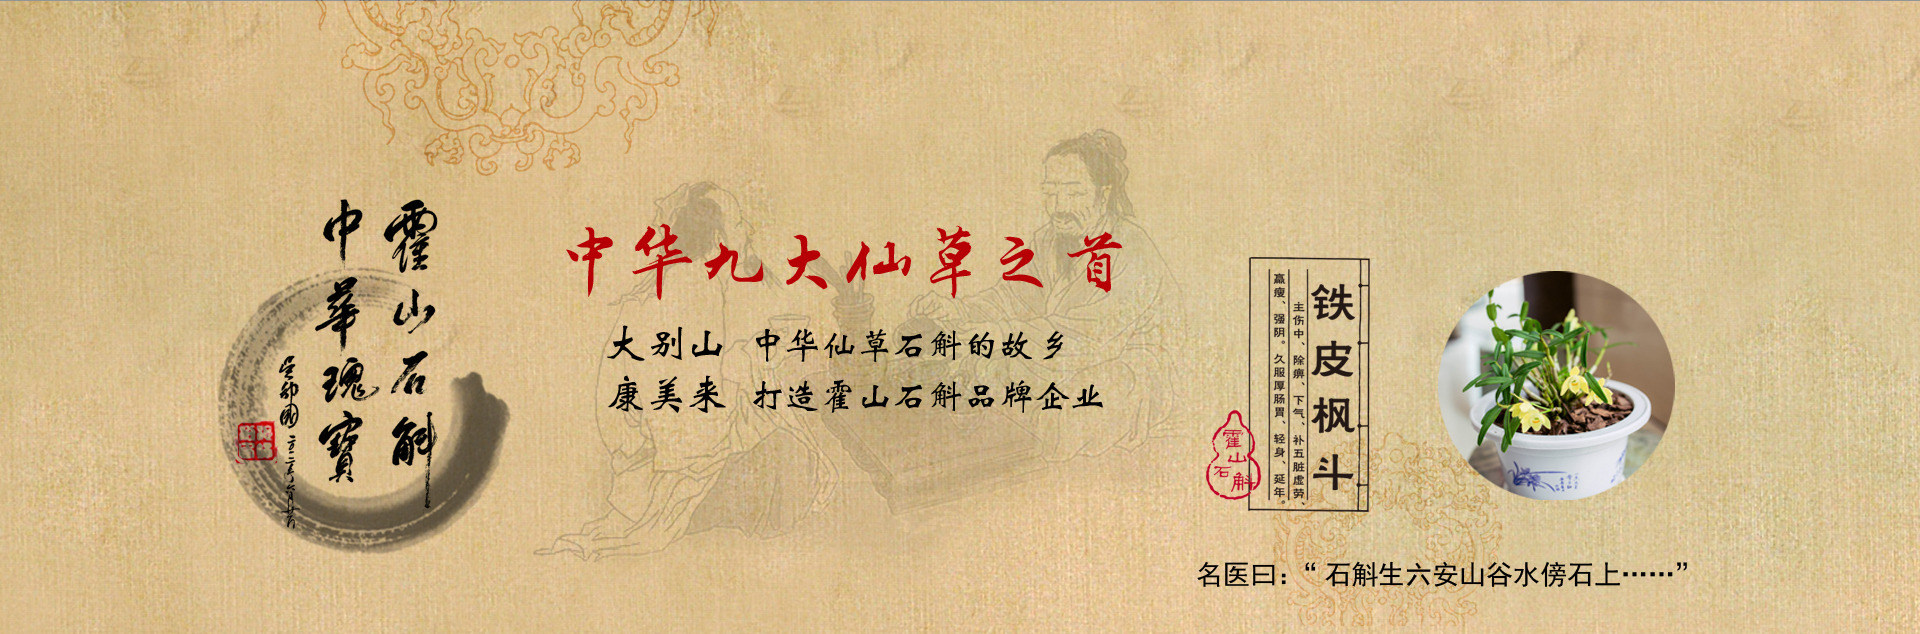 霍山石斛
中華瑰寶
中华九大仙草之首
大别山 中华仙草石斛的故乡
康美来 打造霍山石斛品牌企业
铁皮枫斗
主伤中、除痹、下气、补五脏虚劳、
羸瘦、强阴。久服厚肠胃、轻身、延年。
霍山石斛
名医曰：“ 石斛生六安山谷水傍石上……”